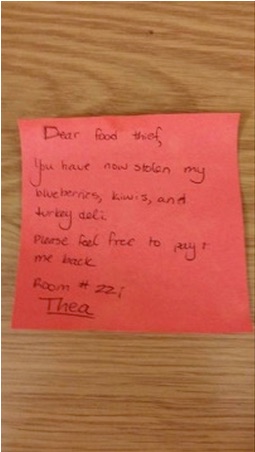 Dear food thief,
You have now stolen my
blueberries, kiwis, and
turkey deli.
Please feel free to pay
me back
Room # 221
Thea